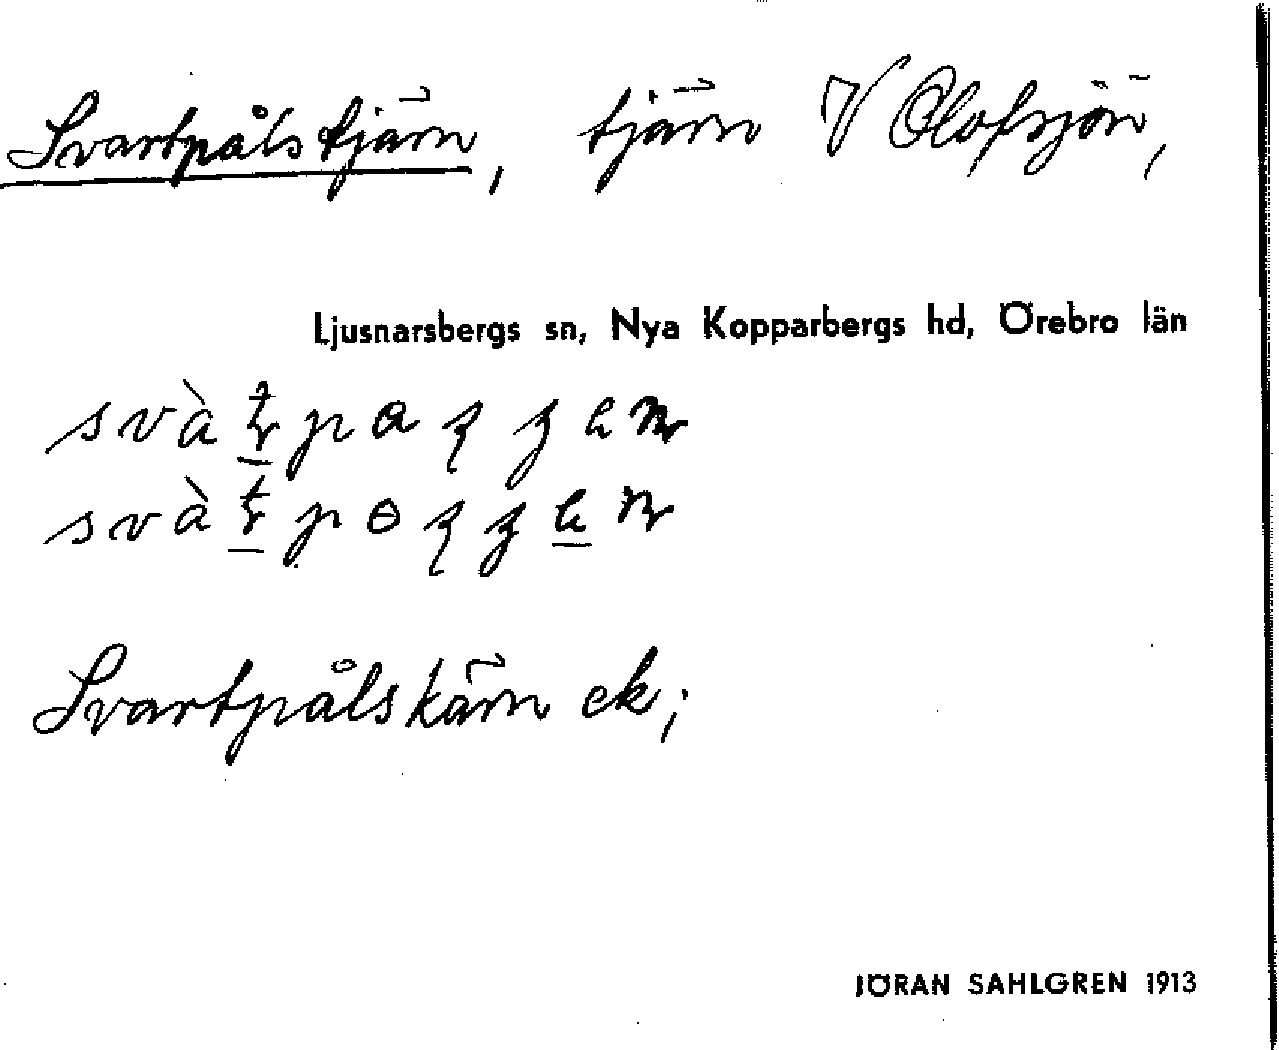 Svartpålstjärn, tjärn V Olofsjön,
Ljusnarsbergs sn, Nya Kopparbergs hd, Örebro län
Svartpålskärn ek;
JÖRAN SAHLGREN 1913